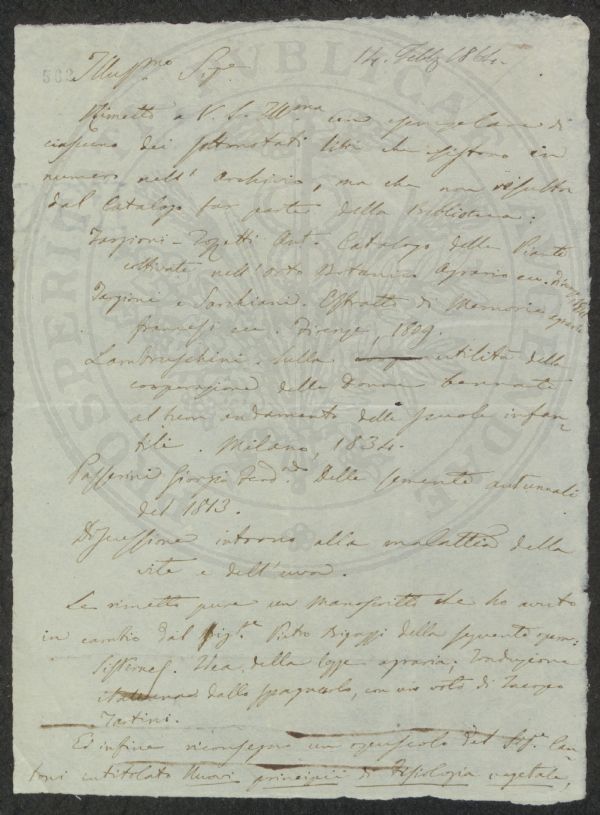 14. Febb. 1864.
562
Illus.mo Sig.e
Rimetto a V. S. Ill.ma un esemplare di
ciascuno dei sottonotati libri che esistono in
numero nell' Archivio, ma che non resulta
dal Catalogo far parte della Biblioteca:
Targioni-Tozzetti Ant. Catalogo delle Piante
coltivate nell'Orto Botanico Agrario ecc. Firenze
Targioni e Sarchiani. Estratti di Memorie agrarie
francesi ecc. Firenze, 1809.
Lambruschini. Sulla utilità della
cooperazione delle Donne bennate
al buon andamento delle scuole infan-
tili. Milano, 1834.
Passerini Giorgi Ferd.ndo Delle semente autunnali
del 1813.
Discussione intorno alla malattia della
vite e dell'uva.
Le rimetto pure un manoscritto che ho avuto
in cambio dal Sig.re Pietro Bigazzi della seguente opera:
Sisternes. Idea della legge agraria. Traduzione
italiana dallo spagnuolo, con un voto di Jacopo
Tartini.
Ed infine riconsegno un opuscolo del Sig.r Can-
toni intitolato Nuovi principii di Fisiologia vegetale,
PROSPERITATI PUBLICAE AUGENDAE